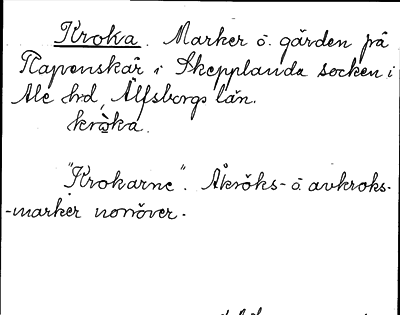 Kroka. Marker ö. gården på
Rapenskår i Skepplanda socken i
Ale hd, Älfsborgs län.
kròka.
"Krokarne". Åkröks- o avkroks-
-marker norröver.